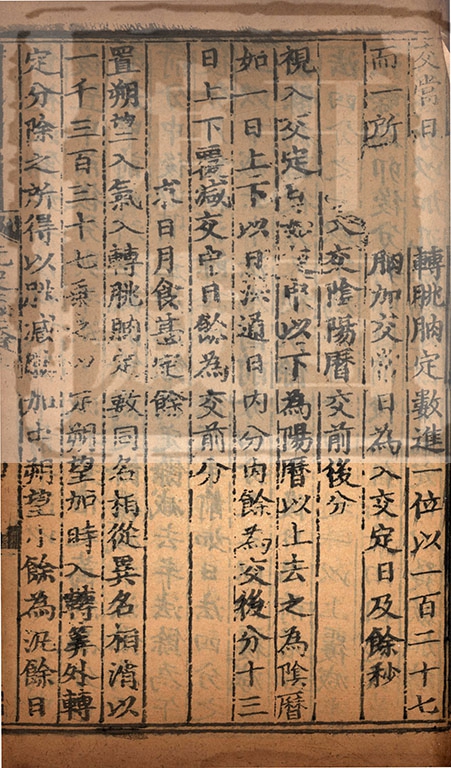 轉朓朒定數進一位以一百二十七
而一所朒加交常日為入交定日及餘秒
入交陰陽曆交前後分
視入交定中以下為陽曆以上去之為陰曆
如一日上下以日法通日內分內餘為交後分十三
日上下覆減交中日餘為交前分
求日月食甚定餘
置朔望入氣入轉朓朒定數同名相從異名相消以
一千三百三十七乘之以定朔望加時入轉算外轉
定分除之所得以朓減朒加中朔望小餘為泛餘日